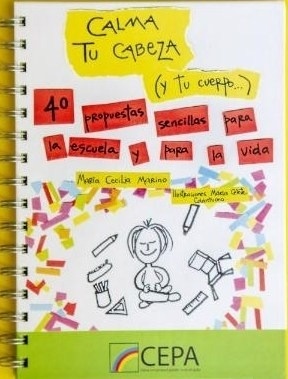 CALMA
TU CABEZA
(y tu cuerpo...)
40 propuestas sencillas para
la escuela y para la vida
María Cecilia Marino
Ilustraciones María
CEPA